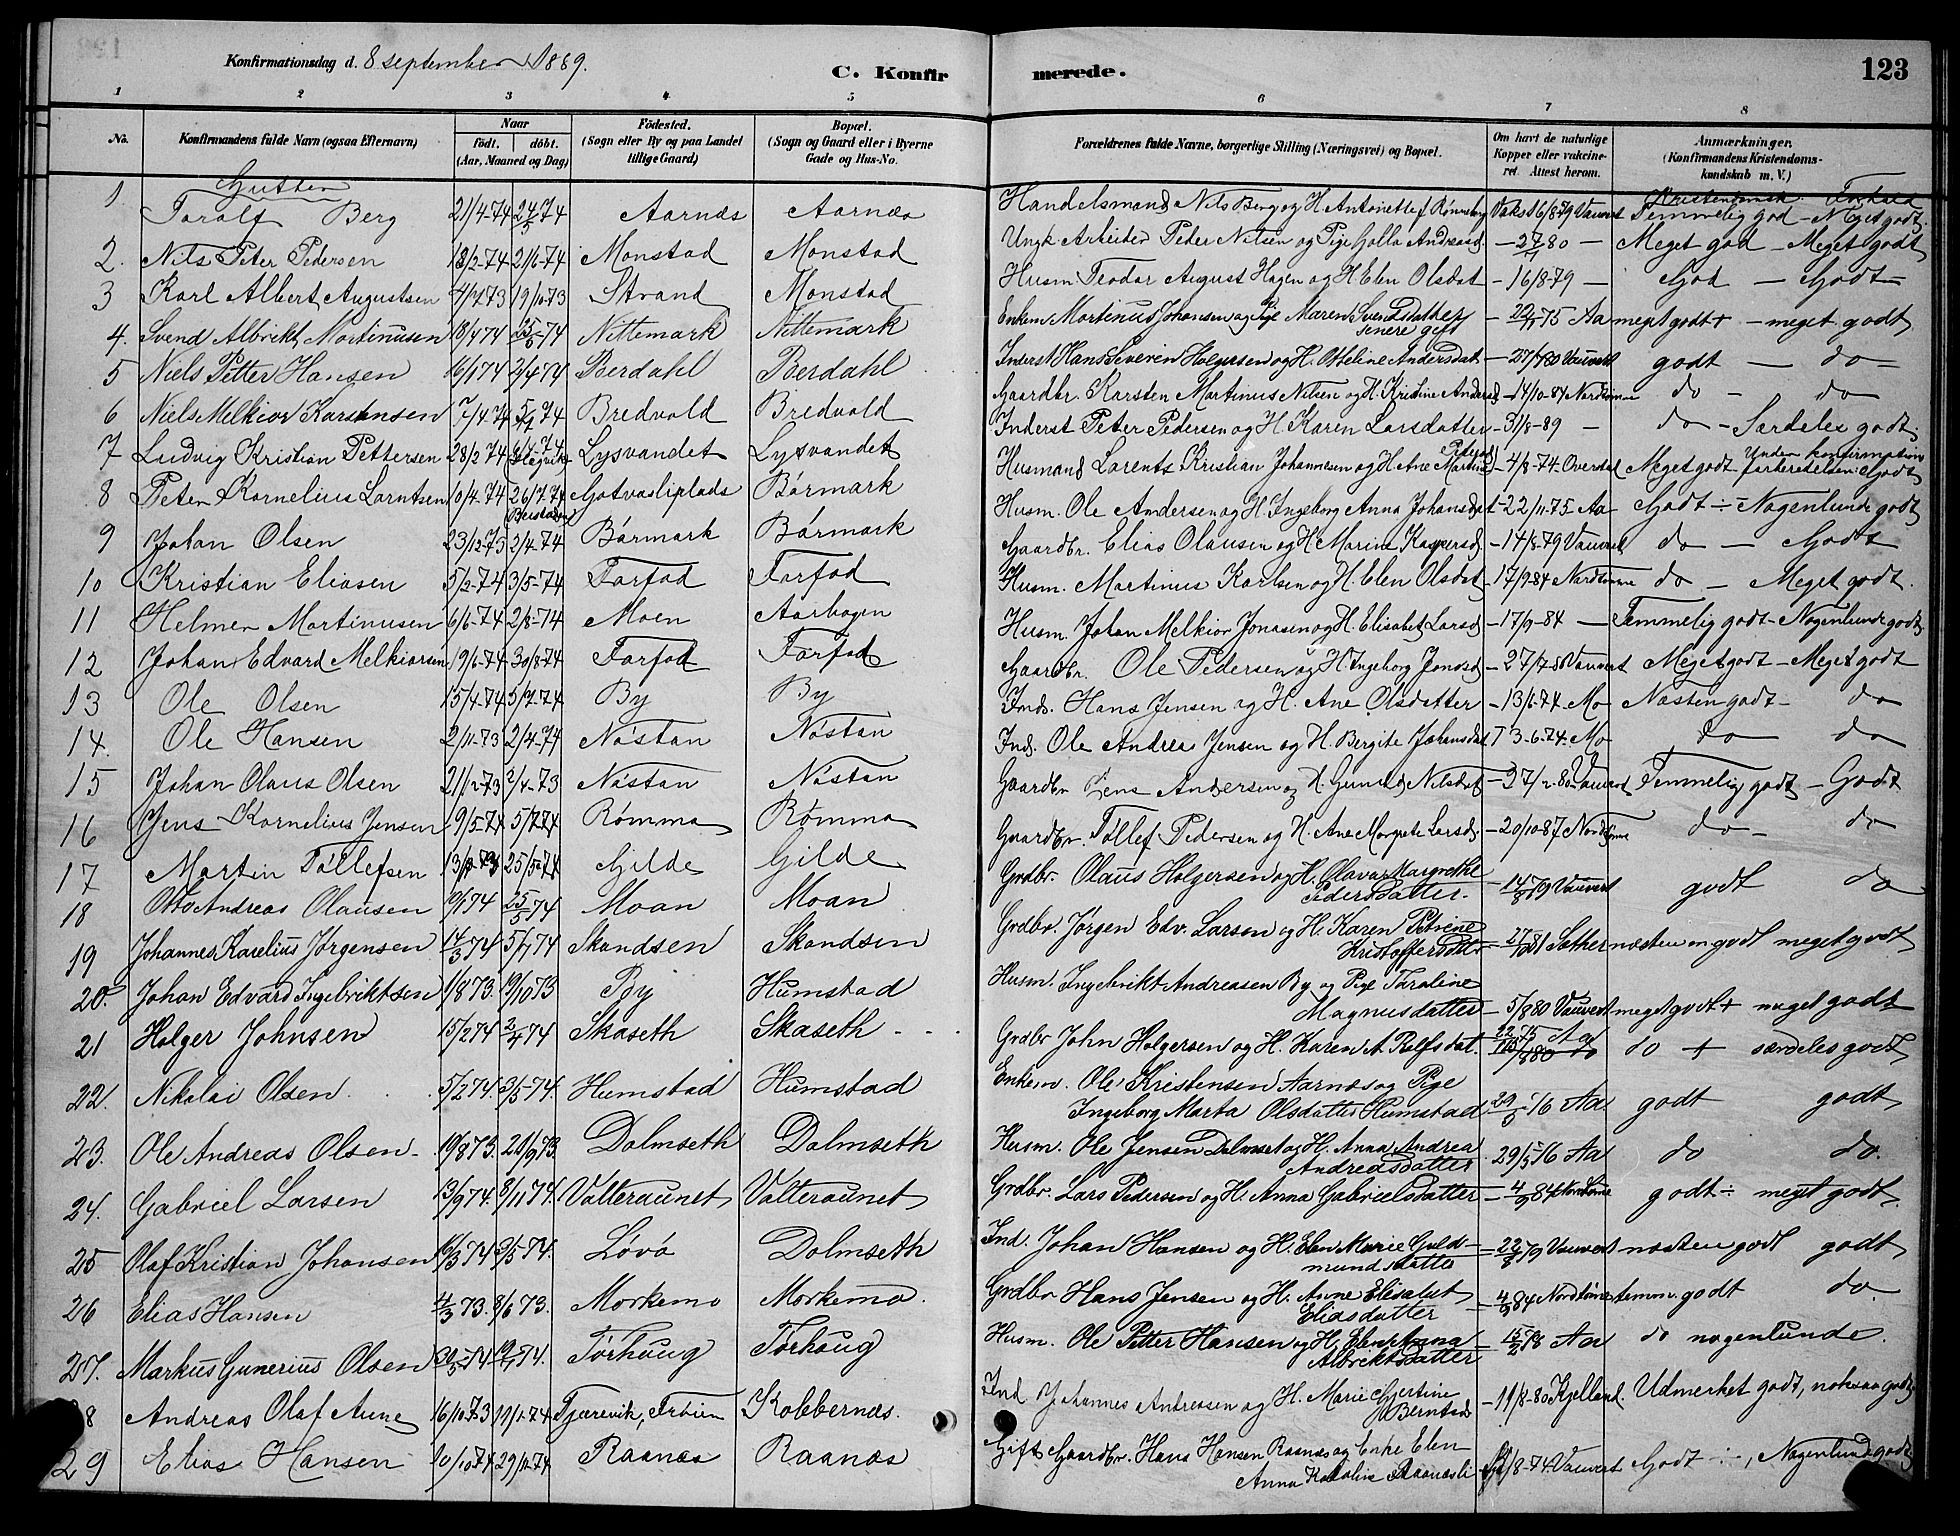 Konfirmationsdag d. 8 september 1889.
C. Konfirmerede.
123
1 2 3 4 5 6 7 8
No. Konfirmandens fulde Navn (ogsaa Efternavn) Naar født. døbt. (Aar, Maaned og Dag) Fødested. (Sogn eller By og paa Landet tillige Gaard) Bopæl. (Sogn og Gaard eller i Byerne Gade og Hus-No. Forældrenes fulde Navne, borgerlige Stilling (Næringsvei) og Bopæl. Om havt de naturlige Kopper eller vakcineret. Attest herom. Anmærkninger. (Konfirmandens Kristendomskundskab m. V.)
Gutter
Kristendomsk. Forhold
1 Toralf Berg 21/4-74 24/5 74 Aarnæs Aarnæs Handelsmand Nils Berg og H. Antonette Vaks 16/8-79 Vauvert Temmelig god - Meget godt
2. Nils Peter Pedersen 18/2-74 21/6-74 Monstad Monstad Ungk Arbeider Peder Nilsen og Pige Golla - 27 80 - Meget god - Meget godt
3 Karl Albert Augustsen 19/10-73 Strand Monstad Husm Teodor August Hagen og H. Elen Olsdat - 16/8-79 - God - Godt -
4. Svend Albrikt Martinusen 18/4 74 25/5-74 Nittemark Nittemark Enkem Martinus Johansen og Pige Maren Svendsdatter senere gift 75 Aa meget godt + - meget godt
5 Niels Petter Hansen 16/1 74 2/4 74 Berdahl Berdahl Inderst Hans Severin Holgersen og H. Otteline Andersdat - 27/7 80 Vauvert godt - do -
6 Niels Melkior Karstensen 7/4 74 74 Bredvold Bredvold Gaardbr. Karsten Martinus Nilsen og H. Kristine - 14/10-84 do - do
7 Ludvig Kristian Pettersen 28/2 74 Lysvandet Lysvandet Inderst Peter Pedersen og H. Karen Larsdatter - 31/8-89 - do - Særdeles godt.
8 Peter Kornelius Larntsen 10/4-74 26/7 74 Børmark Husmand Lorents Kristian Johannesen og H. Ane Martine - 4/8-74 Meget godt - Under konfirmations forberedelsen: Godt
9 Johan Olsen 23/12-73 2/4-74 Børmark Børmark Husm. Ole Andersen og H. Ingeborg Anna Johansdat - 22/11-75 - Aa Godt ÷ - Nogenlunde godt
10 Kristian Eliasen 5/2-74 3/5-74 Forfod Forfod Gaardbr. Elias Olausen og H. Marine - 14/8-79 Vauvert do - Godt
11 Helmer Martinusen 6/6-74 2/8-74 Moen Husm. Martinus Karlsen og H. Elen Olsdat - 17/9-84 do - Meget godt.
12 Johan Edvard Melkiorsen 19/6-74 30/8-74 Forfod Forfod Husm. Johan Melkior Jonasen og H. Elisabet Larsd - 17/9-84 - Temmelig godt - Nogenlunde godt
13 Ole Olsen 15/4-74 5/7-74 By By Gaardbr. Ole Pedersen og H. Ingeborg - 27/7-80 Vauvert Meget godt - Meget godt
14. Ole Hansen 2/11-73 2/4-74 Nøstan Nøstan Inds. Hans Jensen og H. Ane Olsdatter - 13/6-74 - Mo Næsten godt - do
15 Johan Olaus Olsen 2/4-73 Nøstan Nøstan Ind. Ole Andrea Jensen og H. Bergite Johansdat 13-6-74 - Mo do do
16 Jens Kornelius Jensen 19/5-74 5/7 74 Rømma Rømma Gaardbr Jens Andersen og H. Gunild Nilsdat Temmelig godt - Godt
17 Martin Tøllefsen 25/5-74 Gilde Gilde Gaardbr. Tøllef Pedersen og H. Ane Margrete Larsd - 20/10-87 do - do
18 Otto Andreas Olausen 25/5 74 Moan Moan Grdbr. Olaus Holgersen og H. Olava Margrethe Pedersdatter. - 14/8 79 Vauvert godt do
19 Johannes Karelius Jørgensen 14/3 74 5/7 74 Skandsen Skandsen Grdbr. Jørgen Edv. Larsen og H. Karen Petrine Kristoffersdatter 81 Sæther næsten godt meget godt
20. Johan Edvard Ingebriktsen 1/8 73. 19/10 73 By Humstad Husm Ingebrikt Andreasen By og Pige Taraline Magnusdatter - 5/8 80 Vauvert meget godt + meget godt
21 Holger Johnsen 15/2 74 2/4 74 Skaseth Skaseth Grdbr John Holgersen og H. Karen A. Rolfsdat. 75 Aa do + særdeles godt
22. Nikolai Olsen 5/2 74. 3/5-74. Humstad Humstad Enkem. Ole Kristensen Aarnæs og Pige Ingeborg Marta Olsdatter Humstad 29/5 76 Aa godt godt
23. Ole Andreas Olsen 19/8 73. 21/9 73. Dolmseth Dolmseth Husm. Ole Jensen Dolmset og H. Anna Andrea Andreasdatter 29/5 76 Aa do do.
24. Gabriel Larsen 13/9 74. 8/11 74. Valteraunet Valteraunet Grdbr. Lars Pedersen og H. Anna Gabrielsdatter - 4/9 84 godt ÷ meget godt.
25 Olaf Kristian Johansen 16/3 74 3/5-74. Løvø Dolmseth Ind. Johan Hansen og H. Elen Marie Guldmundsdatter 22/8 79 Vauvert næsten godt godt
26 Elias Hansen 4/3 73. 8/6 73. Morkemo Morkemo. Grdbr Hans Jensen og H. Anne Elisabet Eliasdatter 4/9 84 temm. godt do.
27. Markus Gunerius Olsen 74. Tørhaug Tørhaug Husm. Ole Petter Hansen og H. Elen Anna Albriktsdatter Aa do nogenlunde.
28 Andreas Olaf Aune 16/10-73 11/1-74 Tjærevik, Kobbernæs. Ind Johannes Andreasen og H. Marie Gjertine Berntsd - 19/8-80 Kjelland. Udmerket godt, noksaa godt
29 Elias Hansen 10/10-74 29/11-74 Raanæs Raanæs Gift Gaardbr. Hans Hansen Raanæs og Enke Elen Anna Raanæsli 8-74 Vauvert Godt ÷, Nogenlunde godt